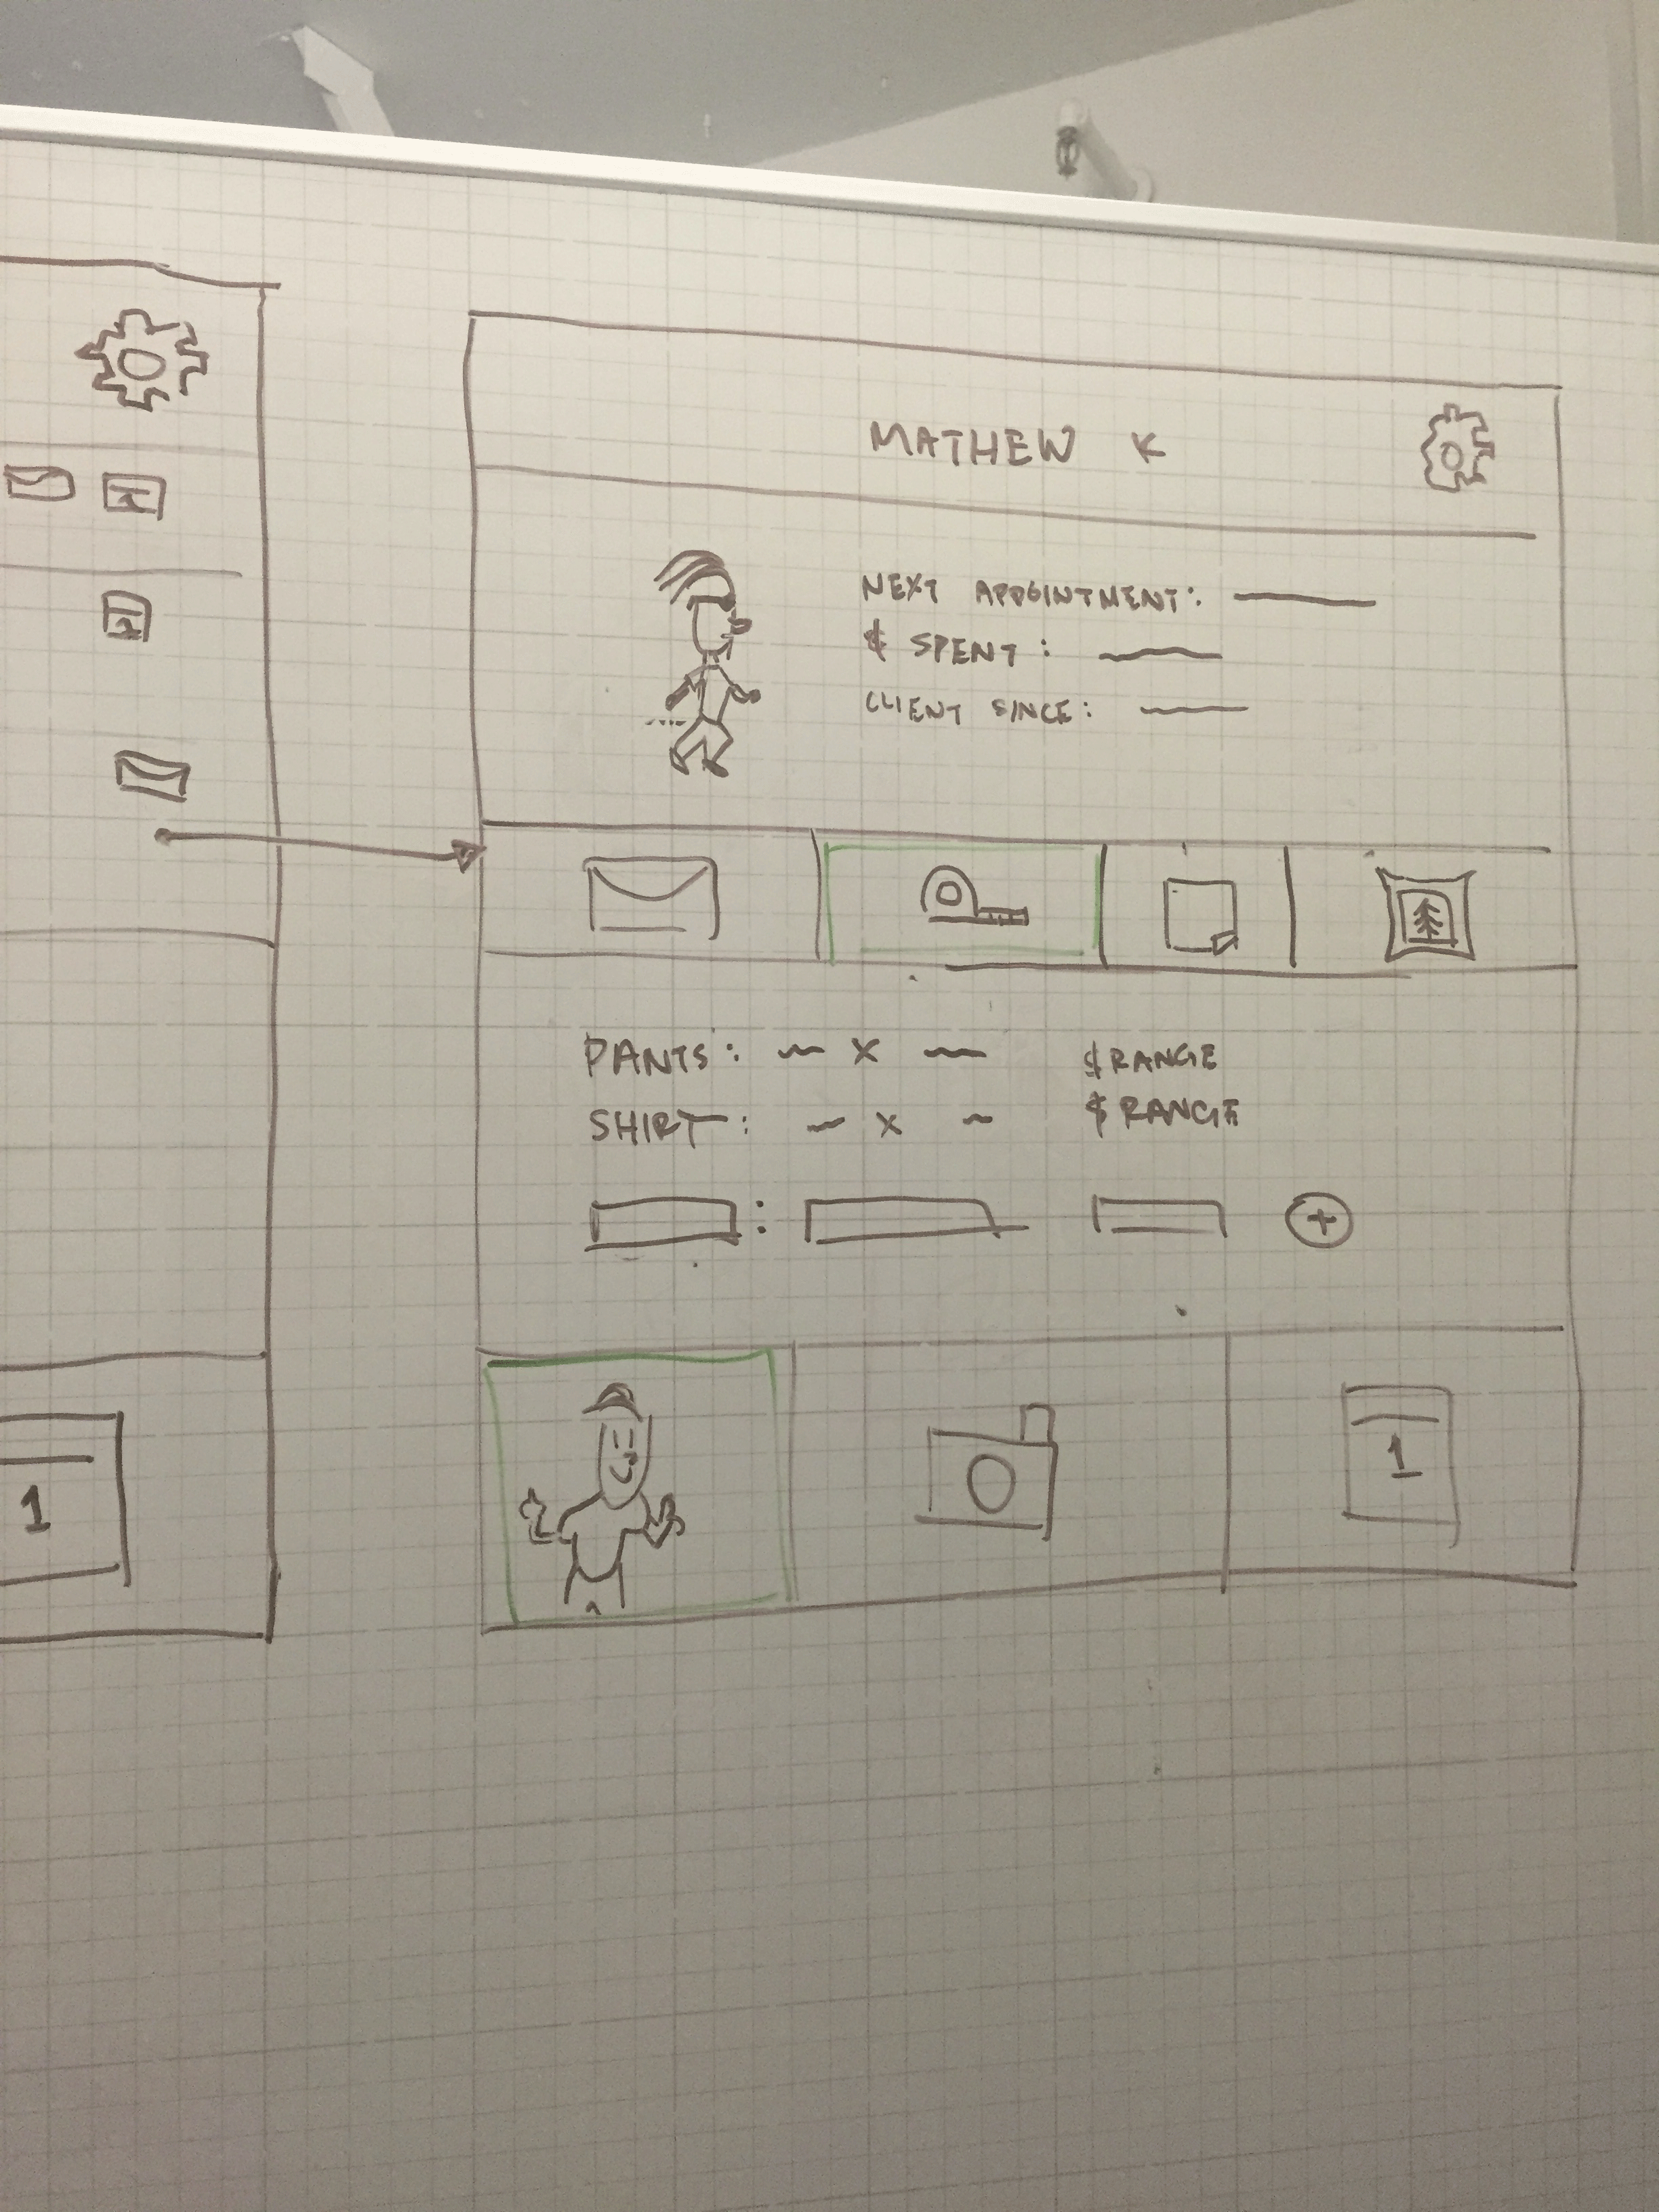 MATHEW K
NEXT APPOINTMENT:
$ SPENT:
CLIENT SINCE:
PANTS: x $ RANGE
SHIRT: x $ RANGE
+
1
1